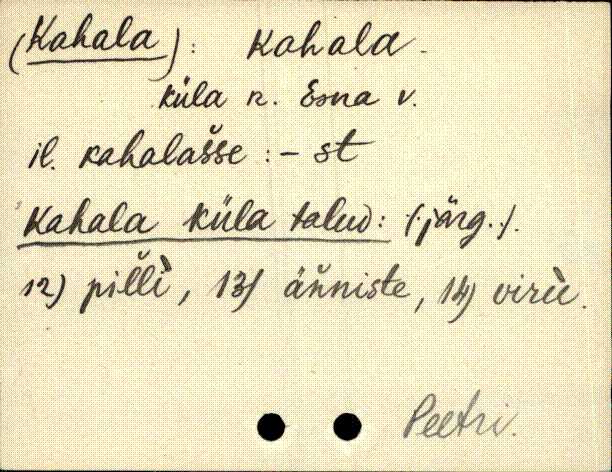 (Kahala): Kahala -
küla n. Esna v.
il. kahalašše : - st
Kahala küla talud: (järg.).
12) pilľì, 13) äňniste, 14) virìì.
Peetri.